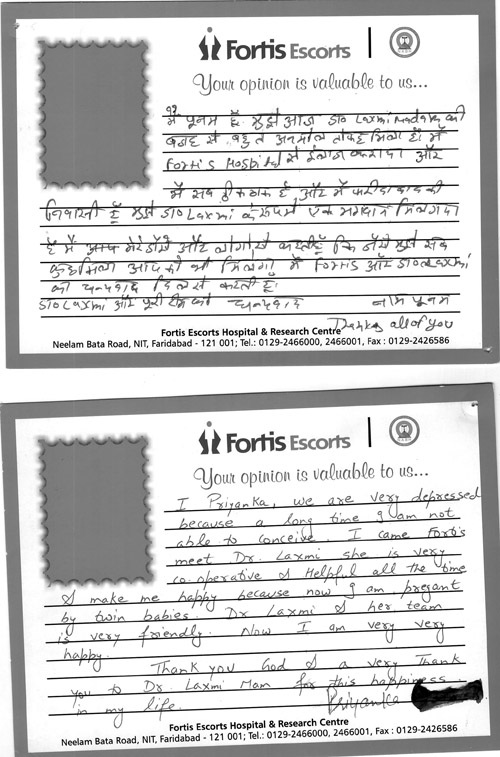 Fortis Escorts
Your opinion is valuable to us...
मैं पूनम हूँ मुझे आज डा० Laxmi Madam की
वजह से बहुत अनमोल तोहफा मिला है। मैं
Fortis Hospital से ईलाज करवाया और
मैं सब ठीक ठाक है, और मैं फरीदाबाद की
निवासी हूँ मुझे डा० Laxmi के रूप में एक भगवान मिल गया
है मैं और लोगों से करती हूँ कि जैसे मुझे सब
कुछ मिला आप को भी मिलेगा मैं Fortis और डा० Laxmi
को धन्यवाद दिल से करती हूँ।
डा० Laxmi और पूरी टीम को धन्यवाद नाम पूनम
Thanks all of you
Fortis Escorts Hospital & Research Centre
Neelam Bata Road, NIT, Faridabad - 121 001; Tel.: 0129-2466000, 2466001, Fax : 0129-2426586
Fortis Escorts
Your opinion is valuable to us...
I Priyanka, we are very depressed
because a long time I am not
able to conceive. I came Fortis
meet Dr. Laxmi she is very
co-operative & Helpful all the time
& make me happy because now I am pregant
by twin babies. Dr Laxmi & her team
is very friendly. Now I am very very
happy.
Thank you God & a very Thank
you to Dr Laxmi Mam for this happiness
in my life. Priyanka
Fortis Escorts Hospital & Research Centre
Neelam Bata Road, NIT, Faridabad - 121 001; Tel.: 0129-2466000, 2466001, Fax : 0129-2426586